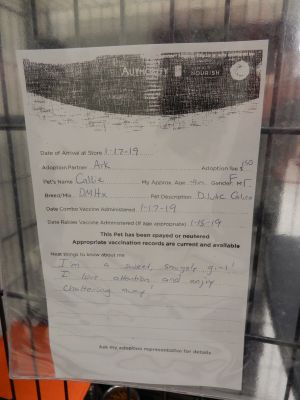 AUTHORITY NOURISH
Date of Arrival at Store 1-17-19
Adoption Partner Ark Adoption fee $150
Pet's Name Callie My Approx. Age Gender F
Breed/Mix DMHx Pet Description Dilute Calico
Date Combo Vaccine Administered 1-17-19
Date Rabies Vaccine Administered (if age appropriate) 1-15-19
This Pet has been spayed or neutered
Appropriate vaccination records are current and available
Neat things to know about me
I'm a sweet, snuggly girl!
I love attention and enjoy
chattering away
Ask my adoption representative for details